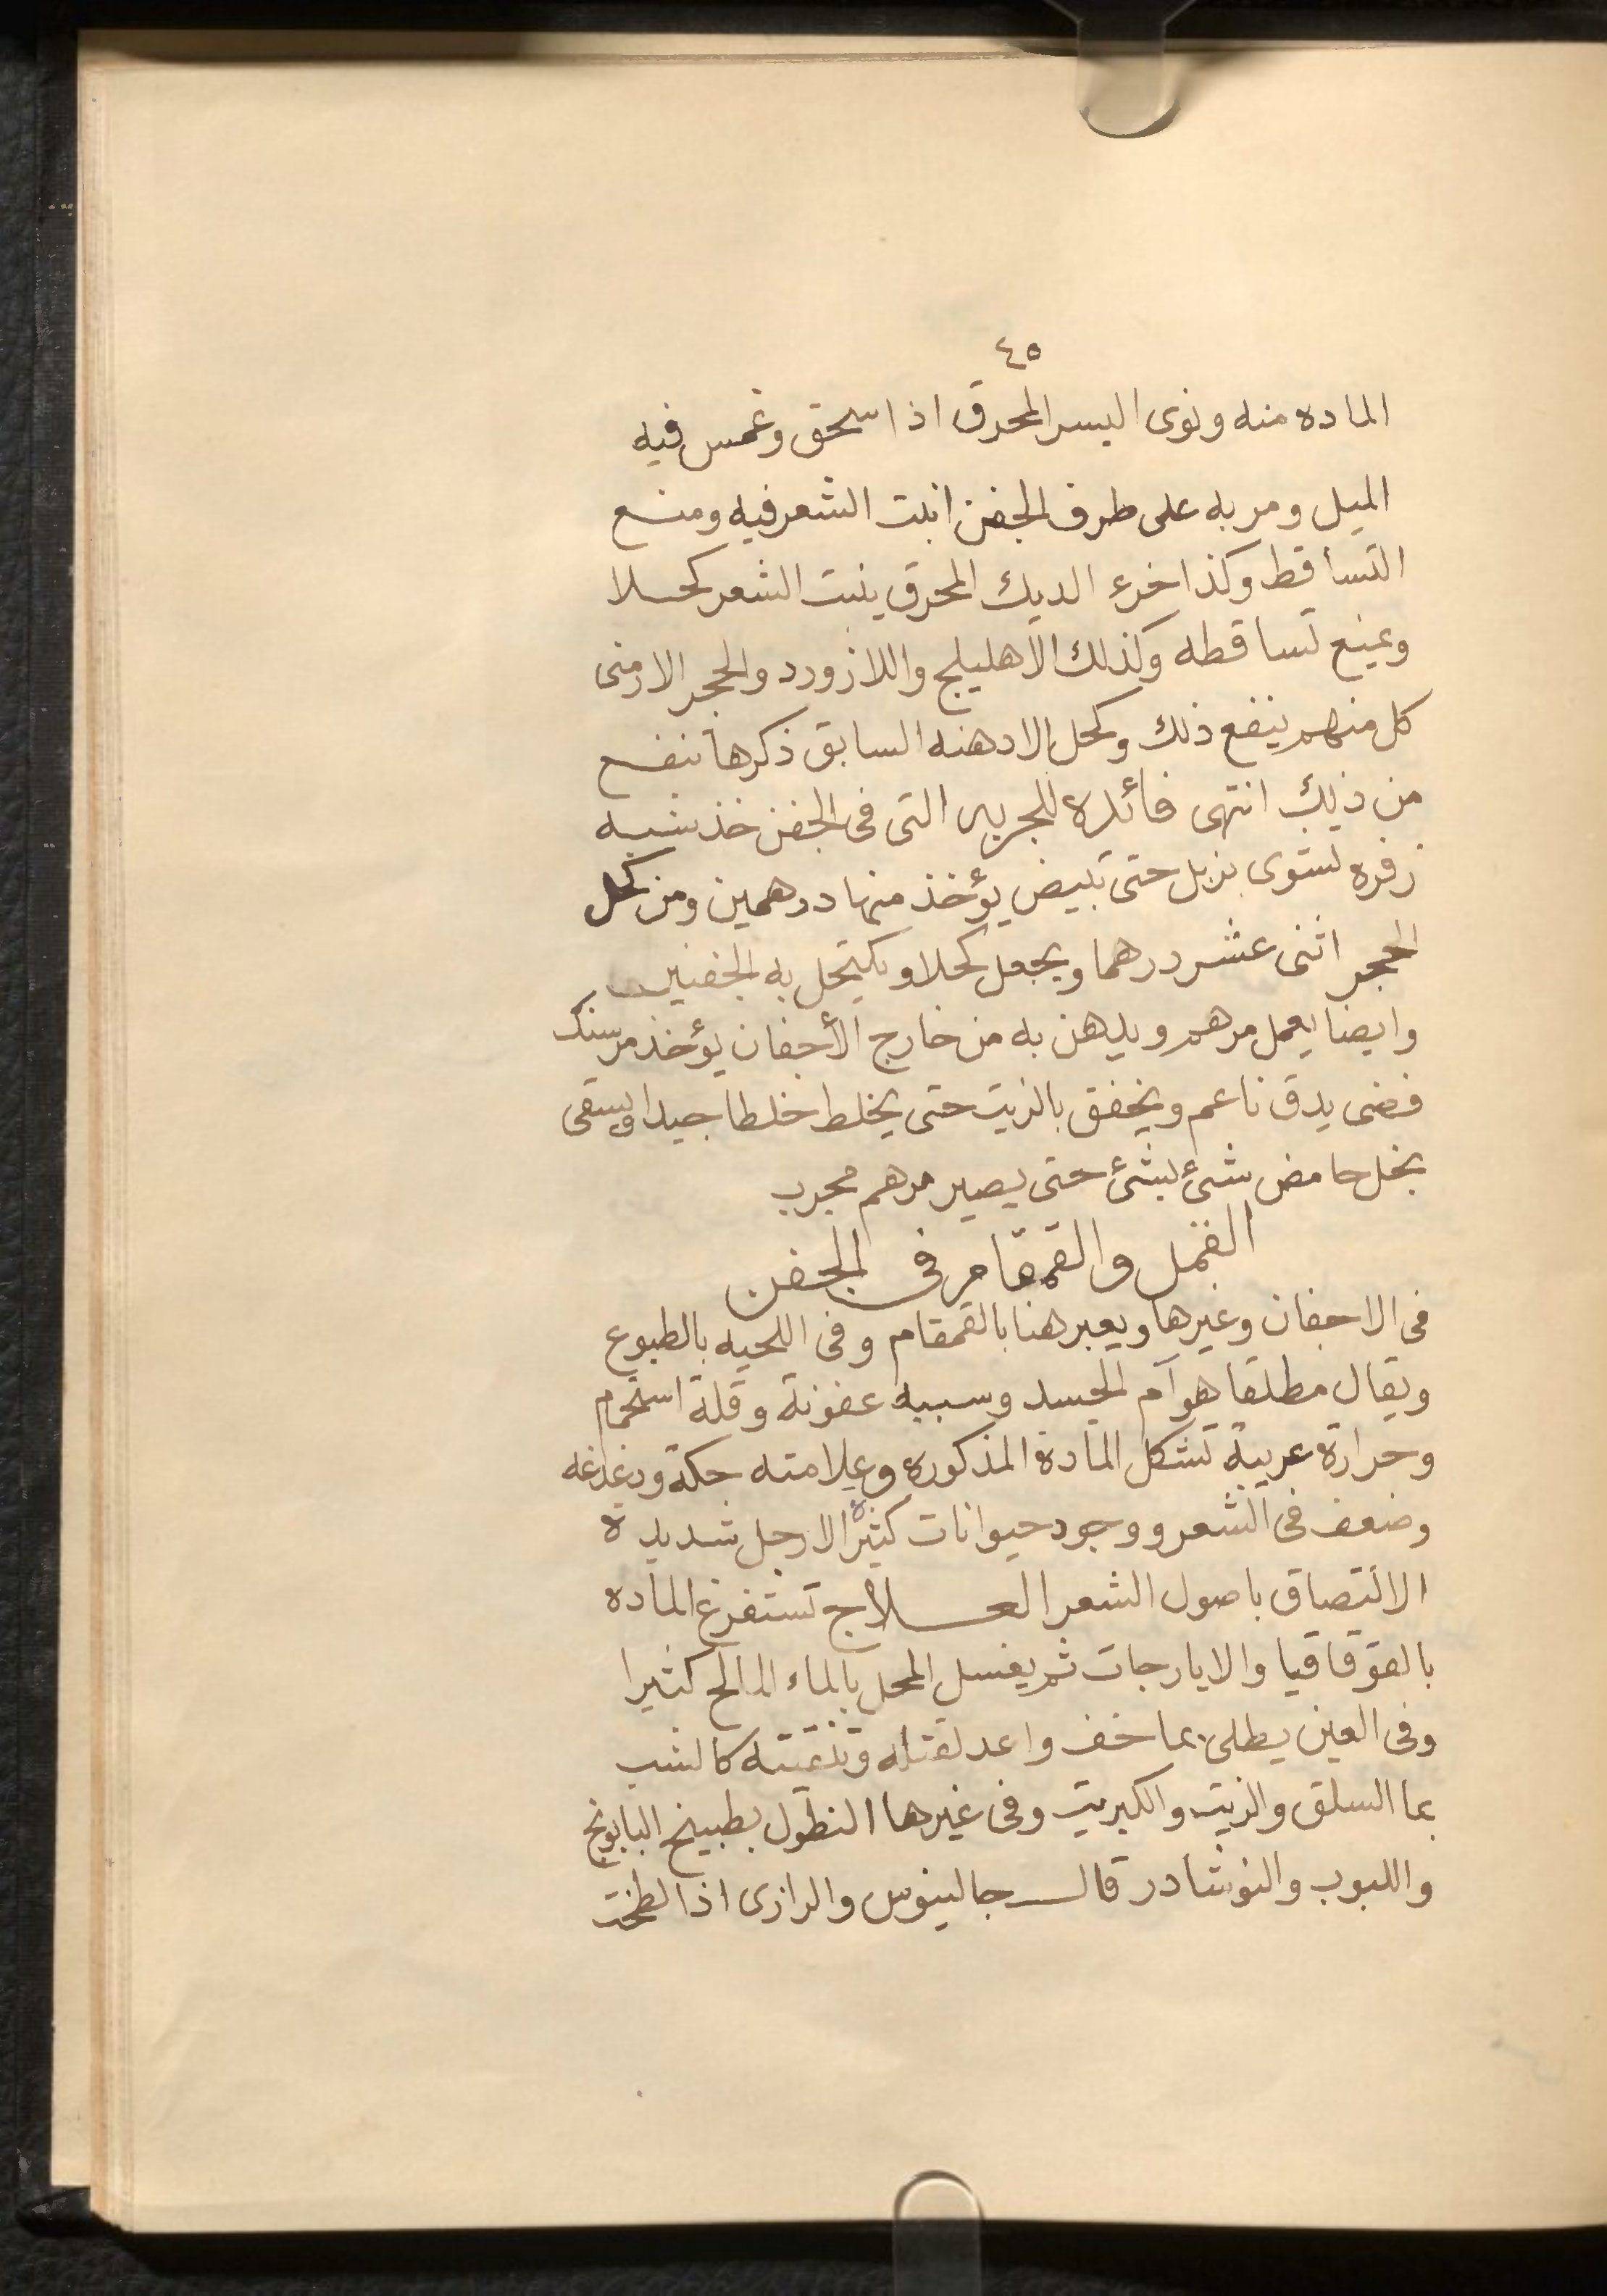 ٤٥
الماده منه ونوى اليسر المحرق اذا سحق وغمس فيه
الميل ومر به على طرف الجفن انبت الشعر فيه ومنع
التساقط وكذا خرء الديك المحرق ينبت الشعر كحلا
ويمنع تساقطه وكذلك الاهليلج واللازورد والحجر الارمنى
كل منهم ينفع ذلك وكحل الادهنه السابق ذكرها تنفع
من ذلك انتهى فائدة للجربه التى فى الجفن خذ شبه
زفره تشوى بزبل حتى تبيض يؤخذ منها درهمين ومن كحل
الحجر اثنى عشر درهما ويجعل كحلا ويكتحل به الجفنين
وايضا يعمل مرهم ويدهن به من خارج الأجفان يؤخذ مرسنك
فضى يدق ناعم ويخفق بالزيت حتى يخلط خلطا جيدا ويسقى
بخل حامض شئ بشئ حتى يصير مرهم مجرب
القمل والقمقام فى الجفن
فى الاجفان وغيرها ويعبر هنا بالقمقام وفى اللحيه بالطبوع
ويقال مطلقا هوآم الجسد وسببه عفونة وقلة استحمام
وحرارة غريبة تشكل المادة المذكوره وعلامته حكة ودغدغه
وضعف فى الشعر ووجود حيوانات كثيرة الارجل شديدة
الالتصاق باصول الشعر العلاج تستفرغ الماده
بالقوقاقيا والايارجات ثم يغسل المحل بالماء المالح كثيرا
وفى العين يطلى بما خف واعد لقتله وتنقيته كالشب
بما السلق والزيت والكبريت وفى غيرها النطول بطبيخ البابونج
واللبوب والنوشادر قال جالينوس والرازى اذا لطخت